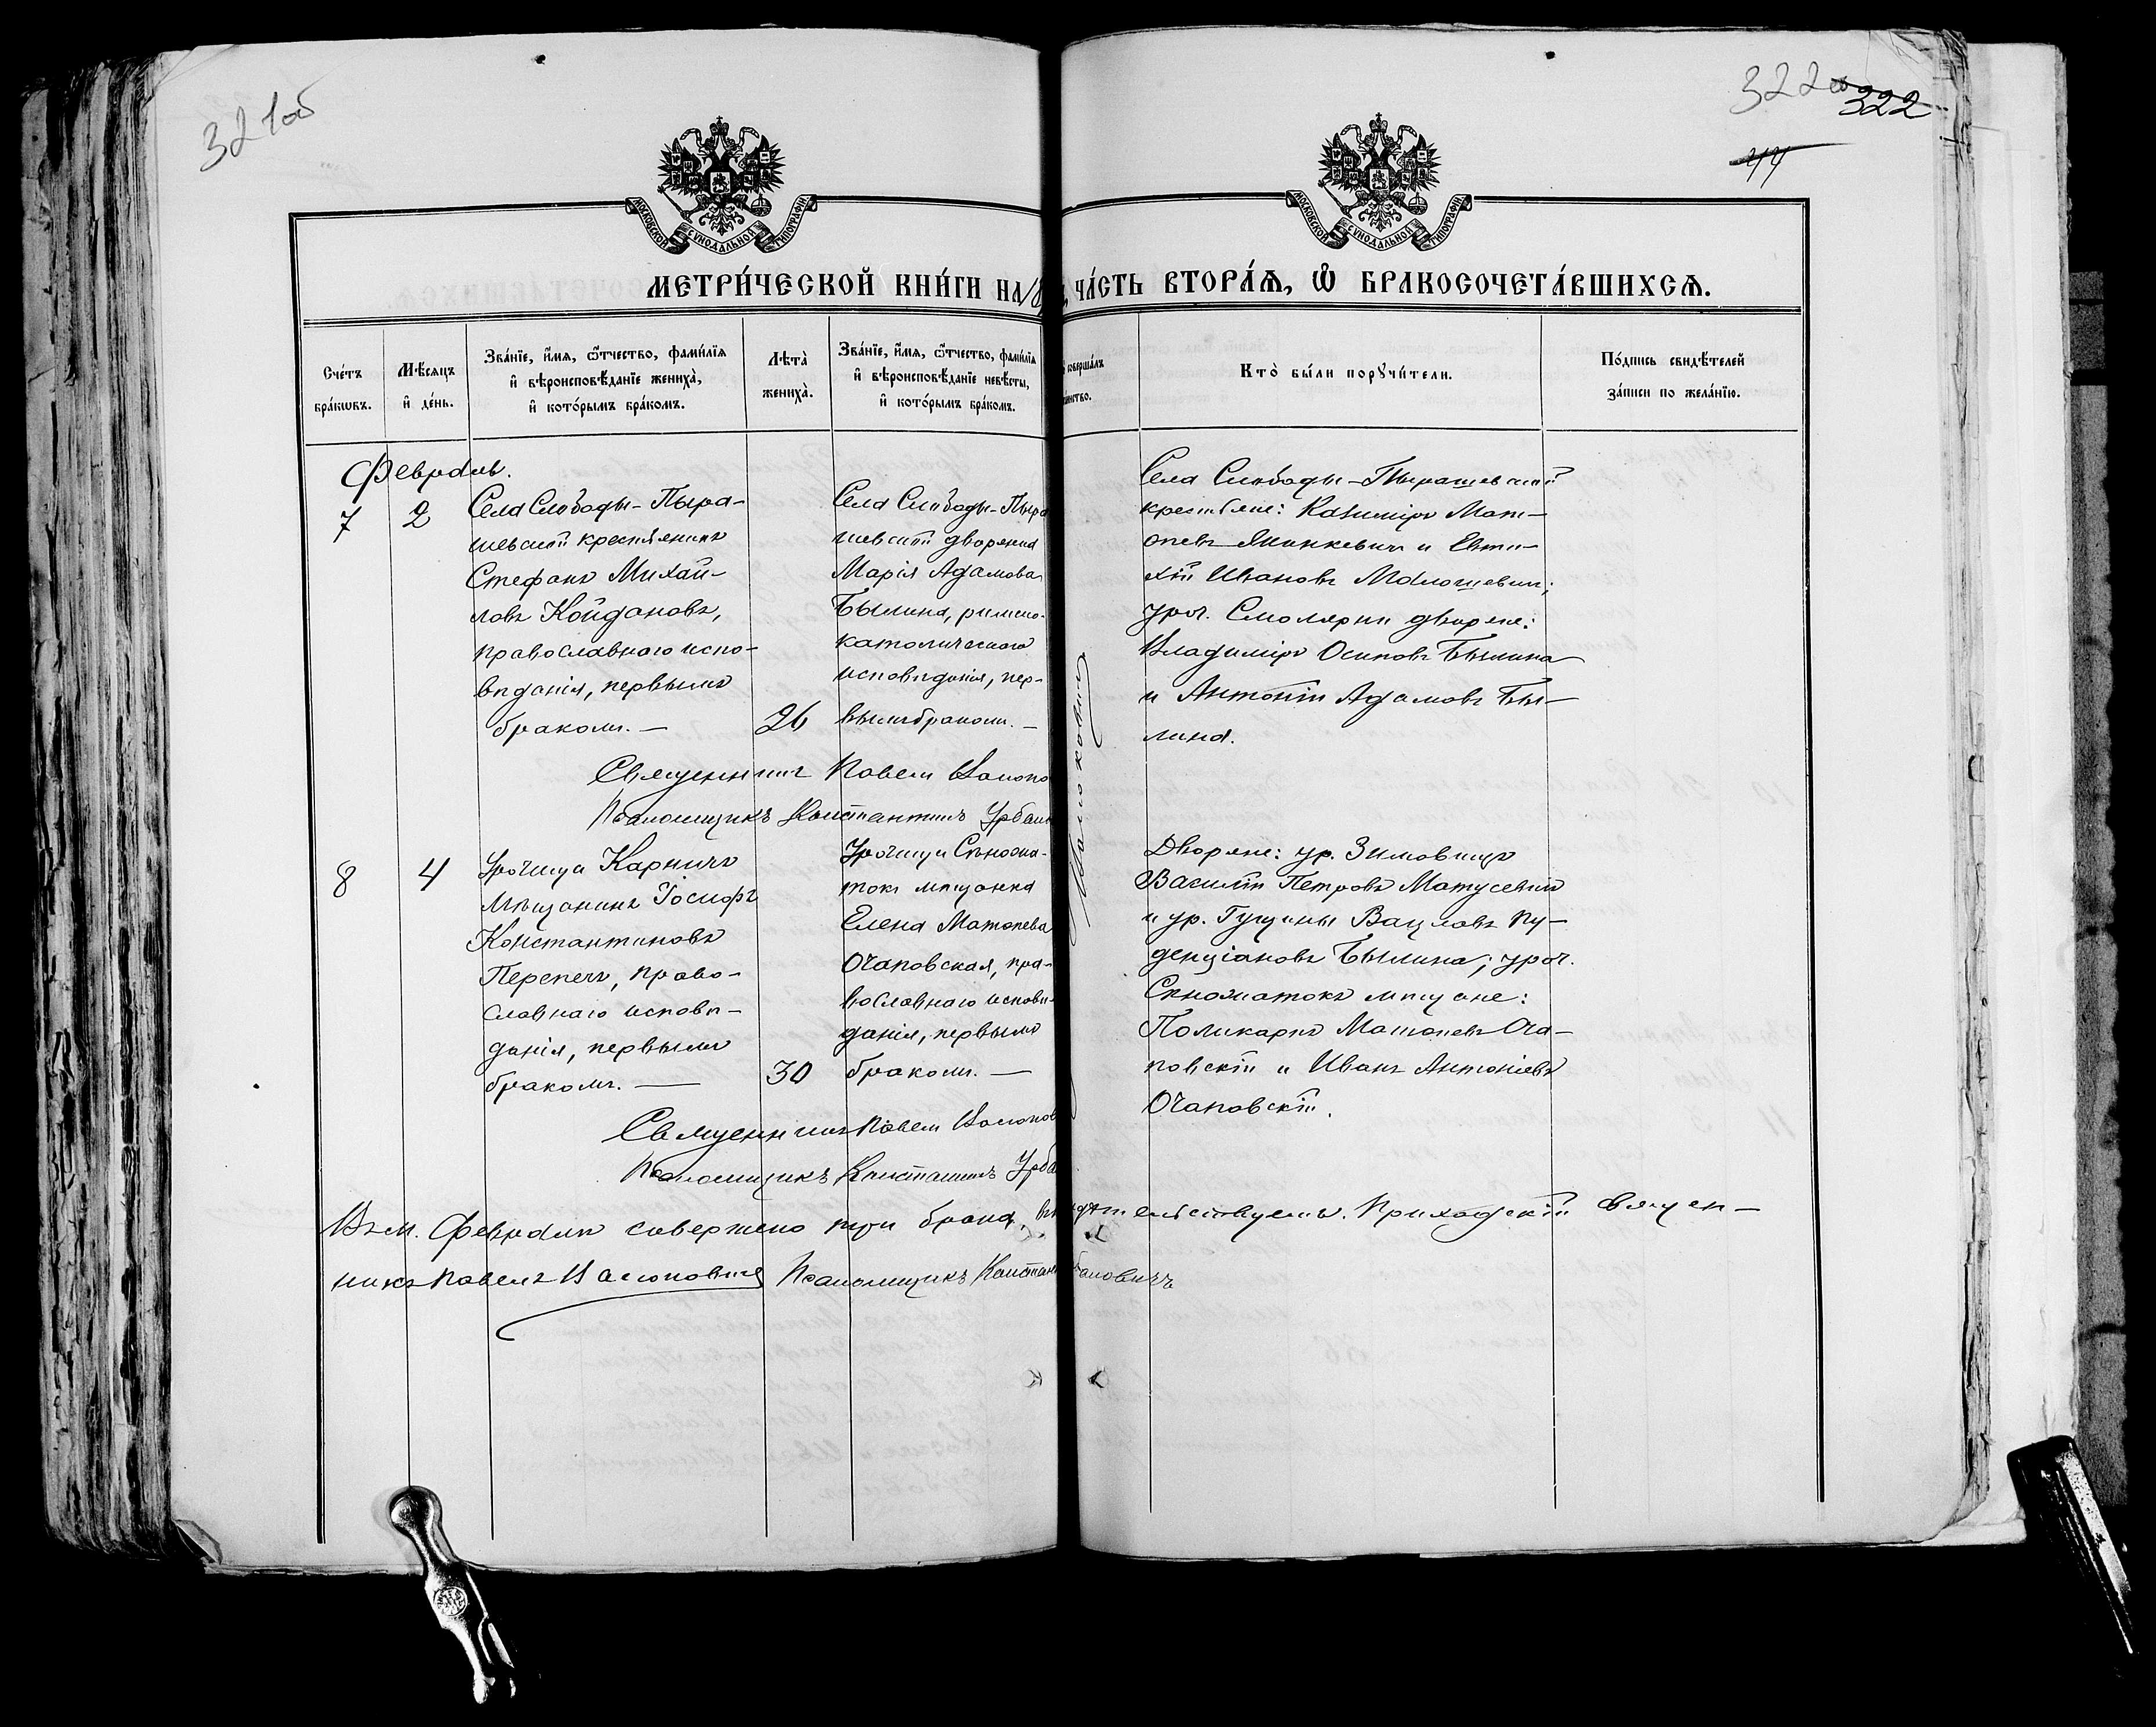 321об
322 об
322
44
МОСКОВСКОЙ СѴНОДАЛЬНОЙ ТИПОГРАФІИ
МОСКОВСКОЙ СѴНОДАЛЬНОЙ ТИПОГРАФІИ
МЕТРИ́ЧЕСКОЙ КНИ́ГИ НА
ЧА́СТЬ ВТОРА́Ѧ, Ѡ҆ БРАКОСОЧЕТА́ВШИХСѦ.
Сче́тъ бра́кѡвъ.
Мѣ́сѧцъ и҆ де́нь.
Зва́нїе, и҆́мѧ, ѻ҆́тчество, фами́лїѧ и҆ вѣроисповѣ́данїе жениха̀, и҆ кото́рымъ бра́комъ.
Лѣта̀ жениха̀.
Зва́нїе, и҆́мѧ, ѻ҆́тчество, фами́лїѧ и҆ вѣроисповѣ́данїе невѣ́сты, и҆ кото́рымъ бра́комъ.
соверша́лъ
Кто̀ бы́ли порꙋчи́тели.
По́дпись свидѣ́телей за́писи по жела́нїю.
Февраль.
7
2
Села Слободы-Пыра-
шевской крестьянинъ
Стефанъ Михай-
ловъ Койдановъ,
православнаго испо-
вѣданія, первымъ
бракомъ. —
26
Села Слободы-Пыра
шевской дворянка
Марія Адамова
Былина, римско-
католическаго
исповѣданія, пер-
вымъ бракомъ. —
Села Слободы-Пырашевской
крестьяне: Казиміръ Мат-
ѳеевъ Якинкевичъ и Евти-
хій Ивановъ Малошевичъ;
уроч. Смолярни дворяне:
Владиміръ Осиповъ Былина
и Антоній Адамовъ Бы-
лина.
Священникъ Павелъ
Псаломщикъ Константинъ Урбан
8
4
Урочища Карпичъ
мѣщанинъ Іосифъ
Константиновъ
Перепечъ, право-
славнаго исповѣ-
данія, первымъ
бракомъ. —
30
Урочища Сѣножа-
токъ мѣщанка
Елена Матѳеева
Очаповская, пра-
вославнаго исповѣ-
данія, первымъ
бракомъ. —
Дворяне: ур. Зимовищъ
Василій Петровъ Матусевичъ
и ур. Гущины Вацлавъ Пу-
денціановъ Былина; уроч.
Сѣножатокъ мѣщане:
Поликарпъ Матѳеевъ Оча-
повскій и Иванъ Антоніевъ
Очаповскій.
Священникъ Павелъ
Псаломщикъ Константинъ Урба
Въ м. Февралѣ совершено три брака, въ
ельствуемъ. Приходскій Священ-
никъ Павелъ
Псаломщикъ Констан
бановичъ